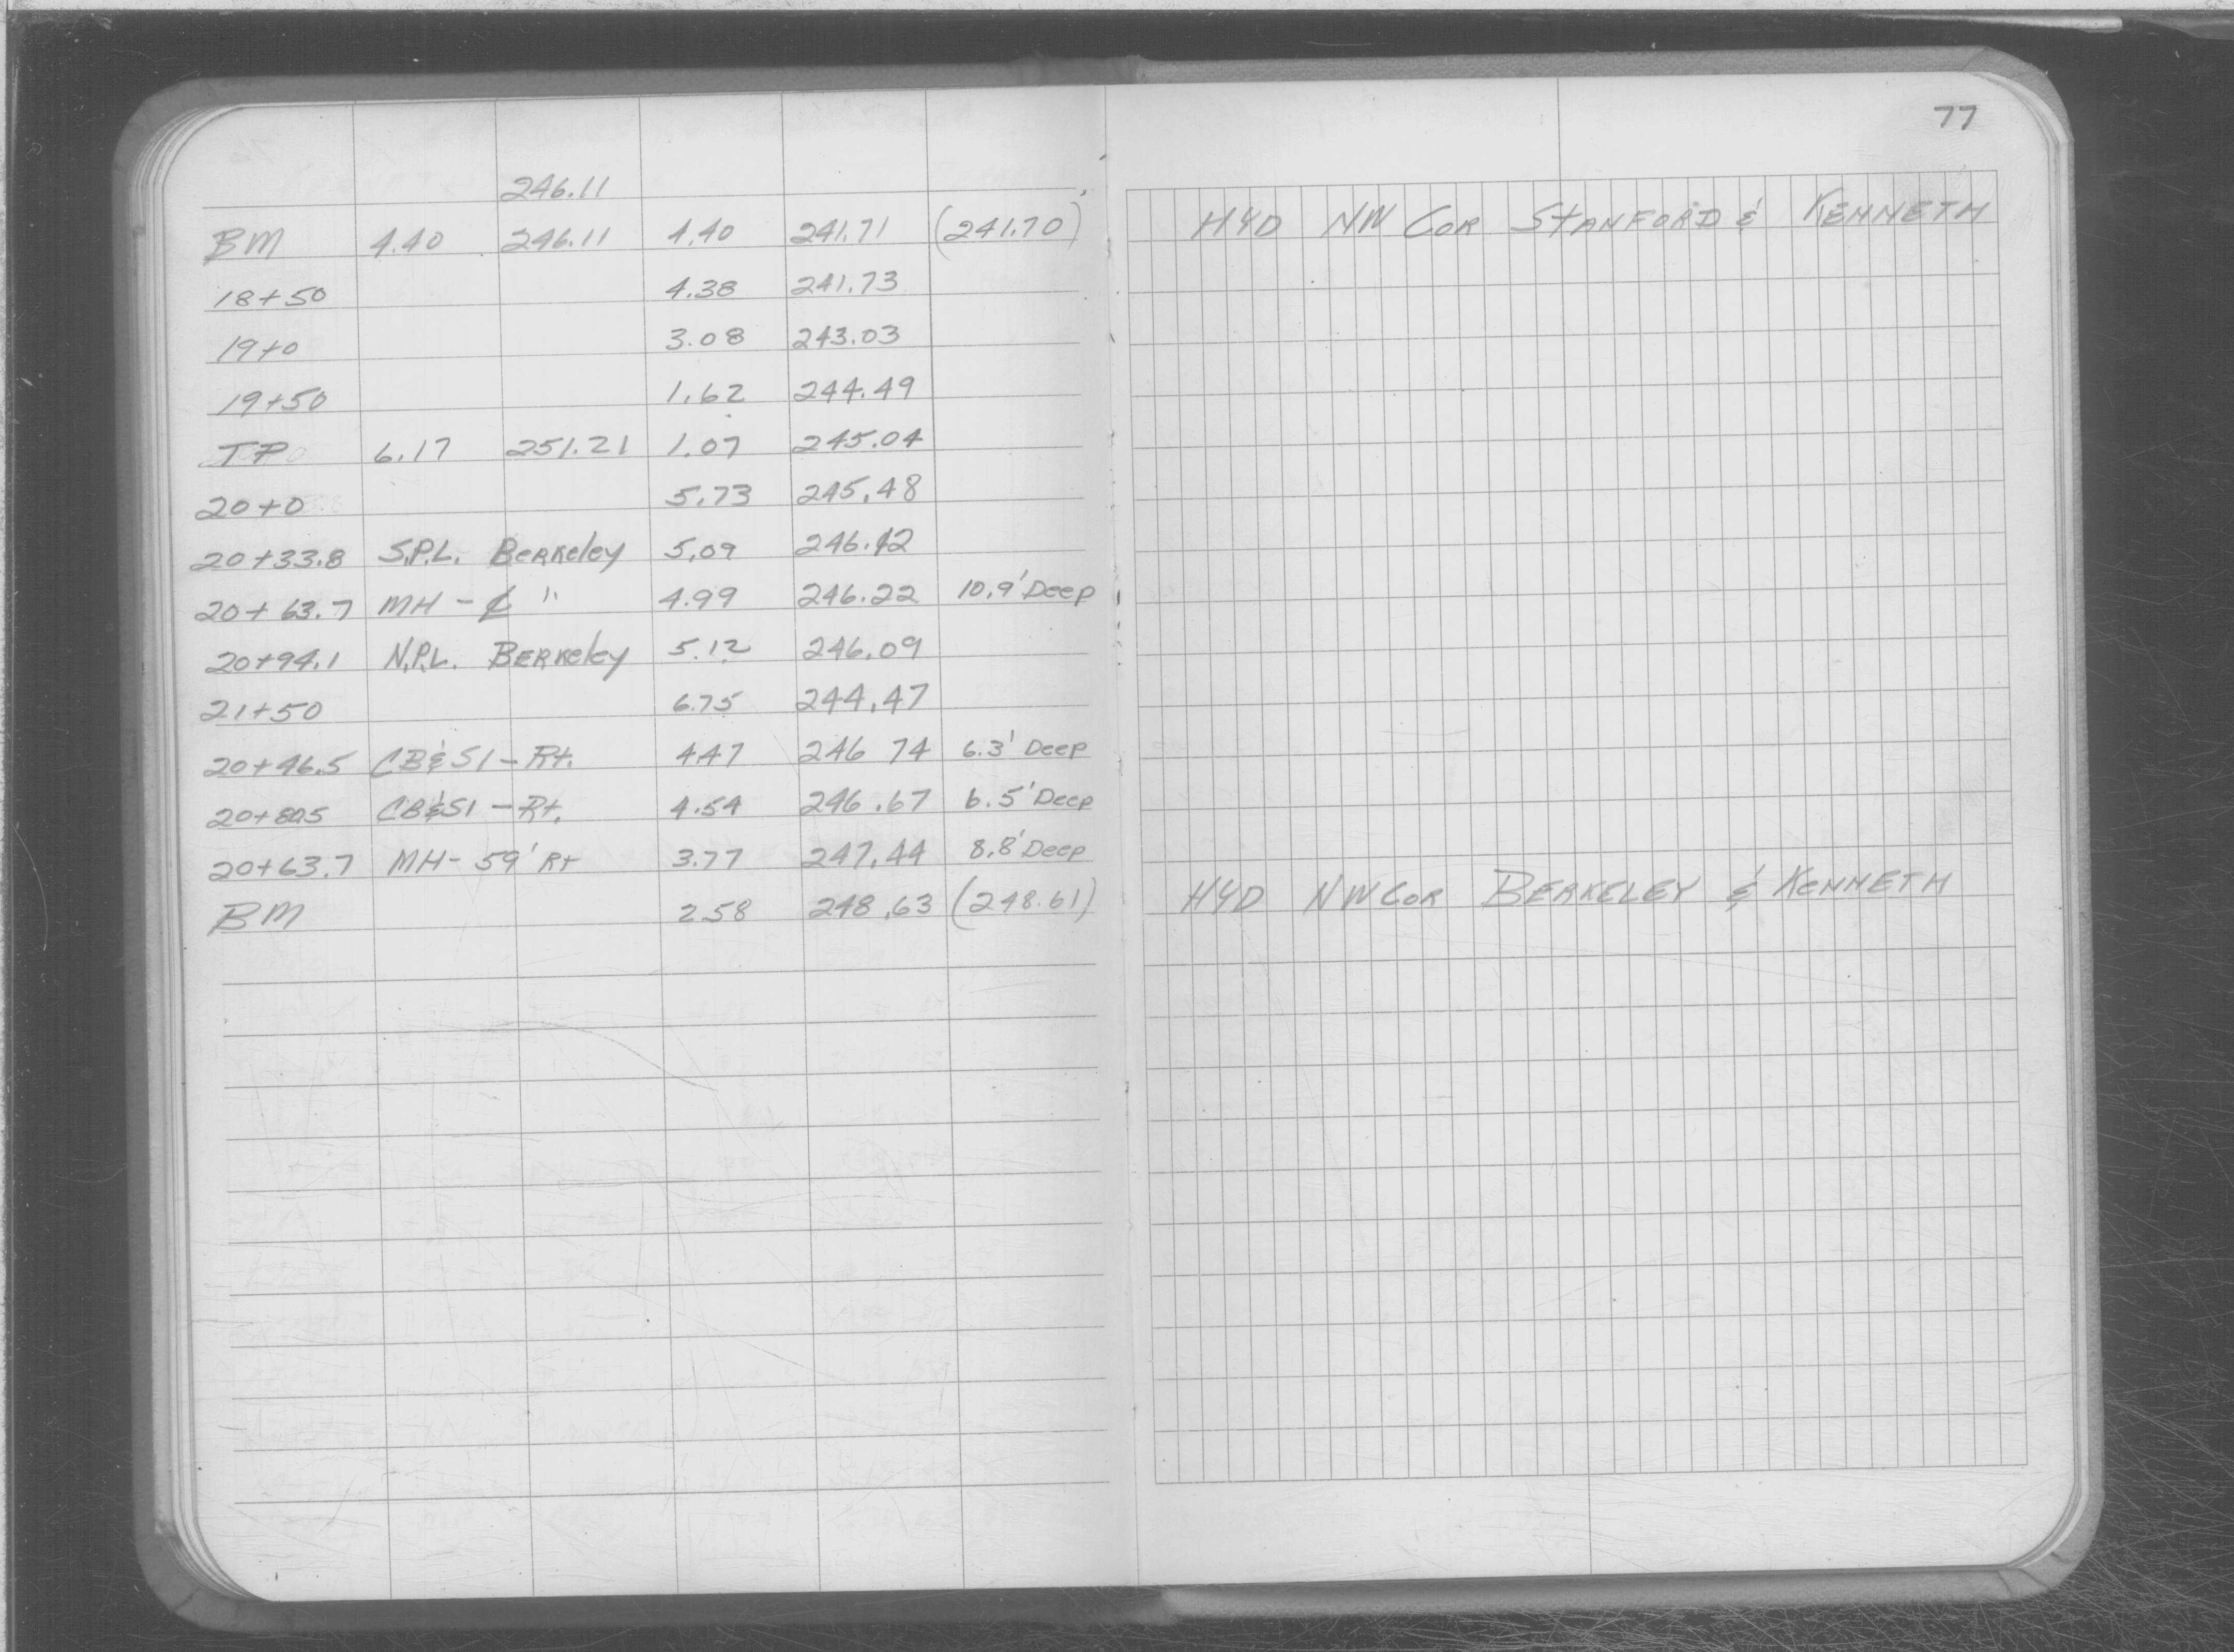 77
246.11
BM 4.40 246.11 4.40 241.71 (241.70) HYD NW COR STANFORD & KENNETH
18+50 4.38 241.73
19+0 3.08 243.03
19+50 1.62 244.49
TP 6.17 251.21 1.07 245.04
20+0 5.73 245.48
20+33.8 S.P.L. Berkeley 5.09 246.12
20+63.7 MH - ℄ " 4.99 246.22 10.9' Deep
20+94.1 N.P.L. Berkeley 5.12 246.09
21+50 6.75 244.47
20+46.5 CB&SI - Rt. 4.47 246 74 6.3' Deep
20+80.5 CB&SI - Rt. 4.54 246.67 6.5' Deep
20+63.7 MH - 59' Rt 3.77 247.44 8.8' Deep
BM 2.58 248.63 (248.61) HYD NW COR BERKELEY & KENNETH